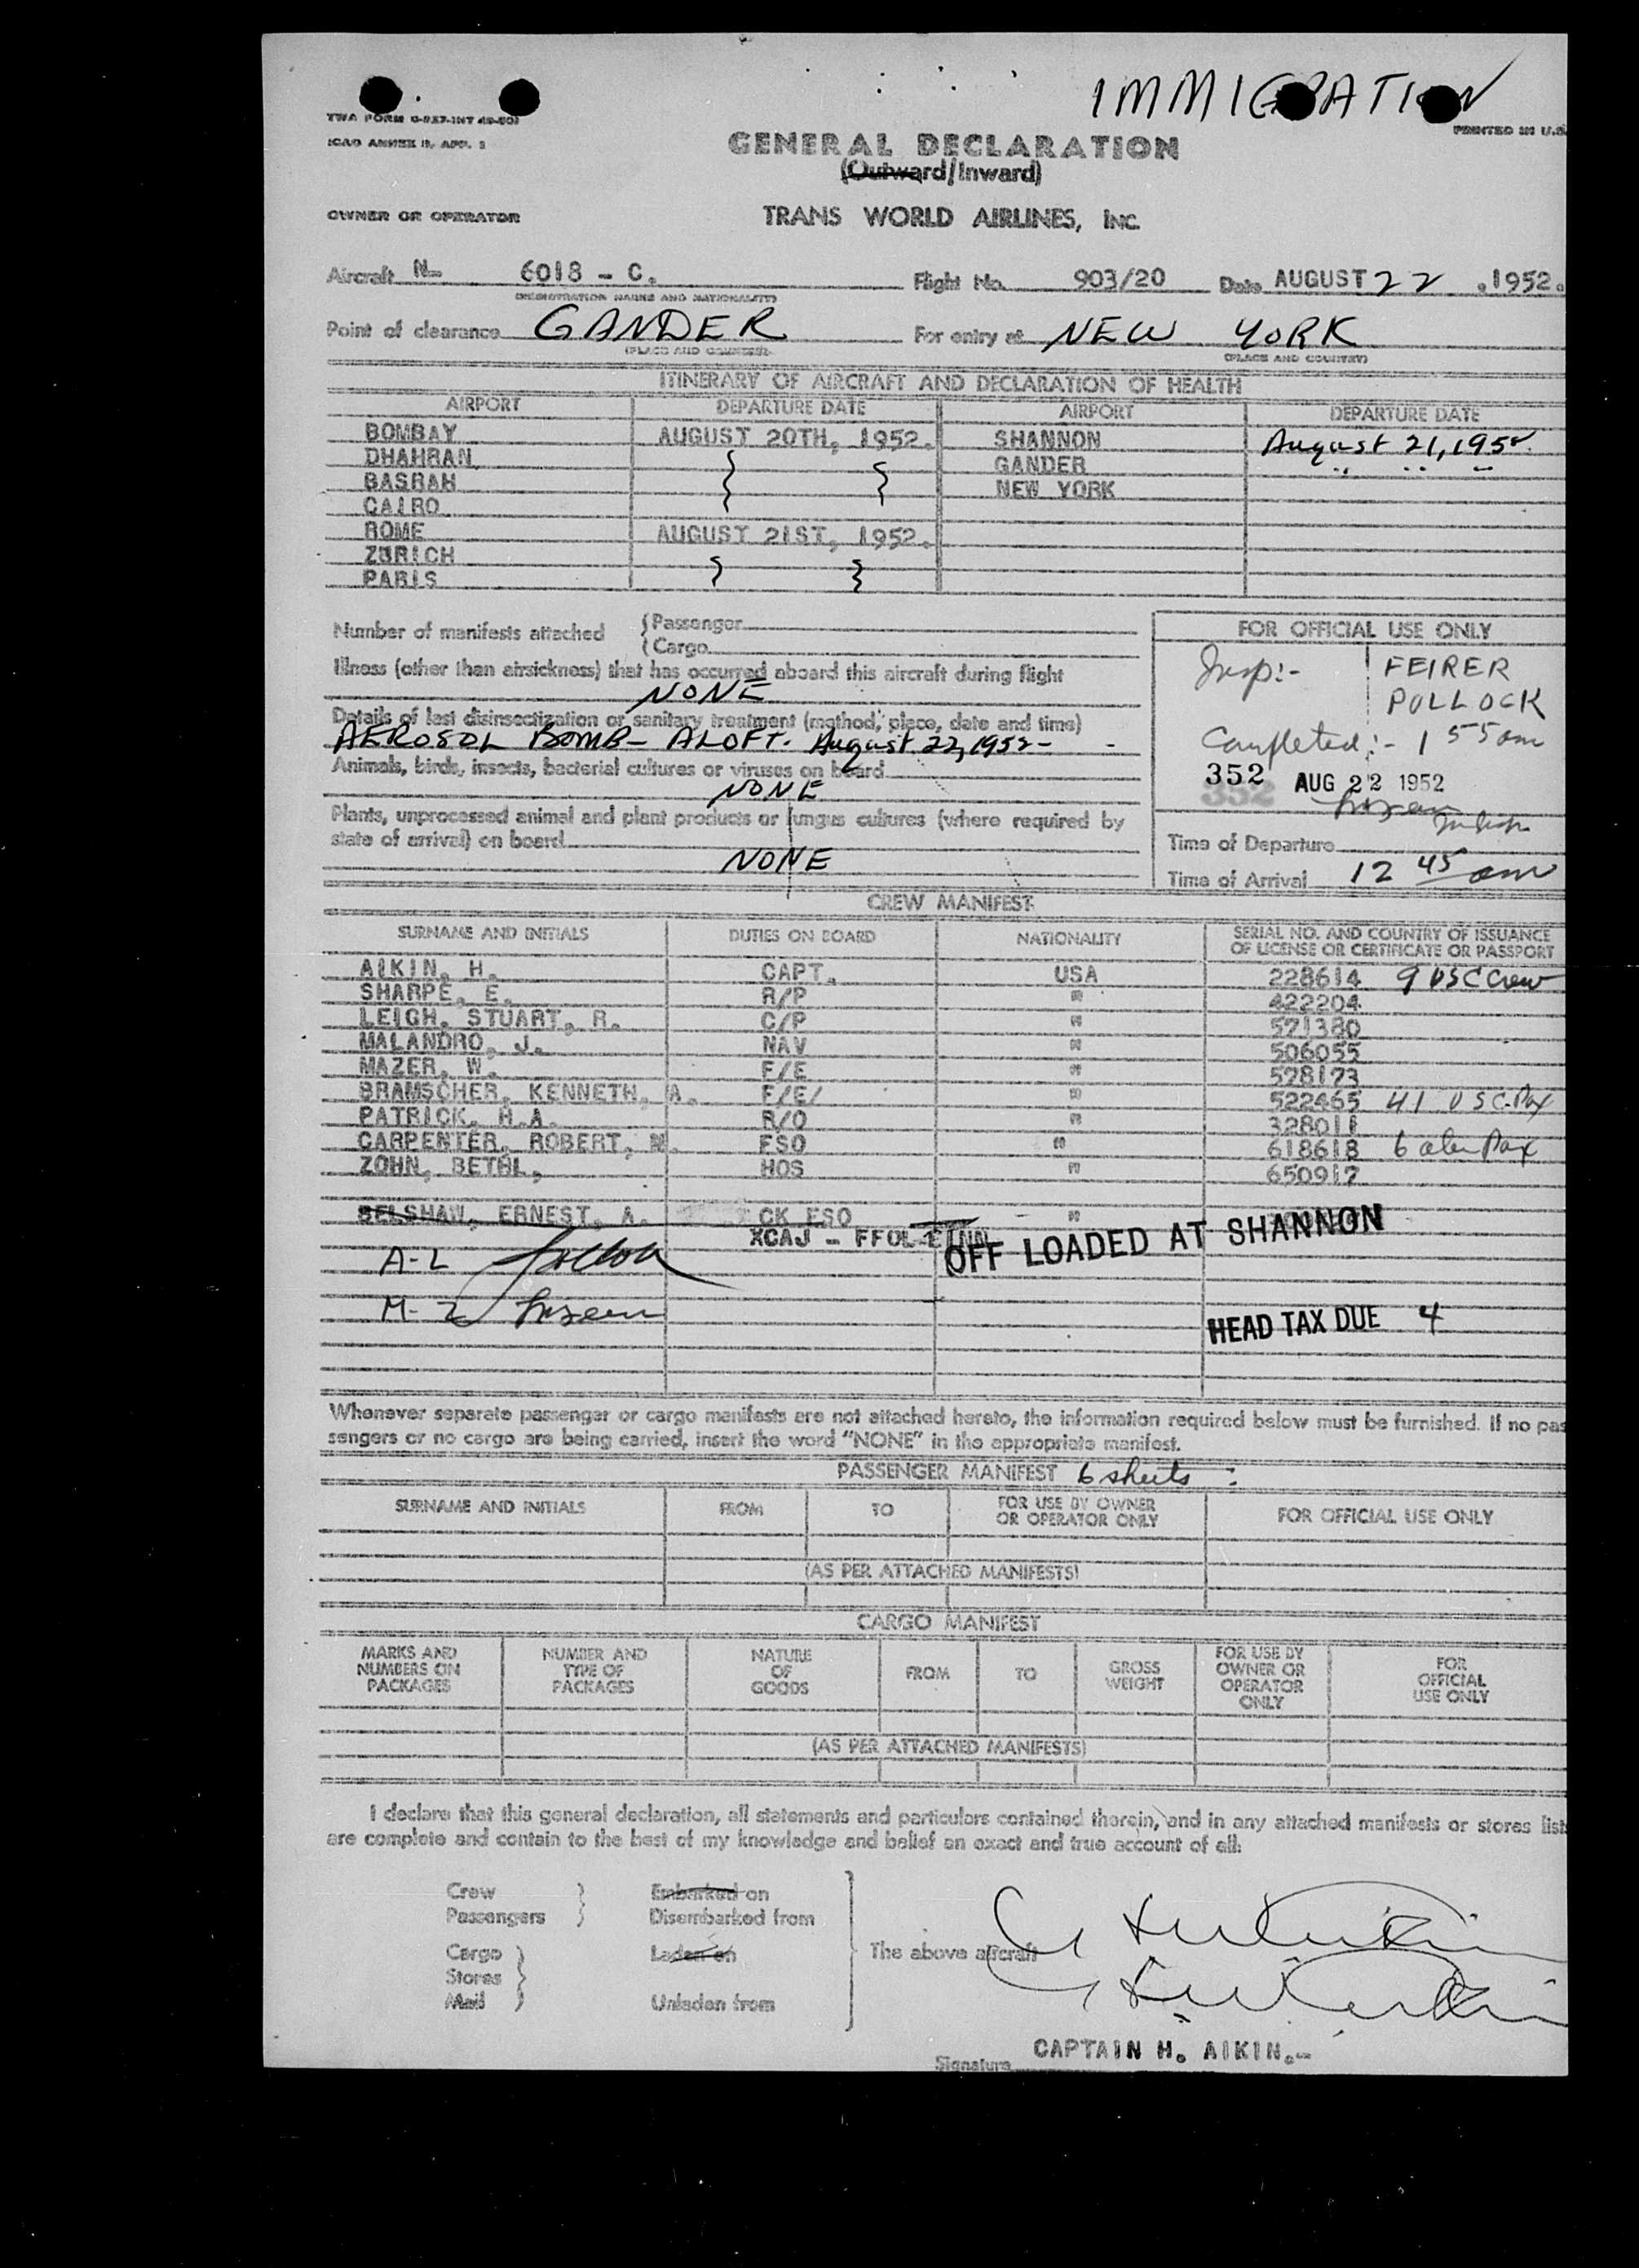 IMMIGRATION
TWA FORM
ICAO ANNEX 9, APP. 1
PRINTED IN U.S.
GENERAL DECLARATION
(Outward/Inward)
OWNER OR OPERATOR TRANS WORLD AIRLINES, INC.
Aircraft N- 6018 - C. Flight No. 903/20 Date AUGUST 22 .1952.
(REGISTRATION MARKS AND NATIONALITY)
Point of clearance GANDER For entry at NEW YORK
(PLACE AND COUNTRY) (PLACE AND COUNTRY)
ITINERARY OF AIRCRAFT AND DECLARATION OF HEALTH
AIRPORT DEPARTURE DATE AIRPORT DEPARTURE DATE
BOMBAY AUGUST 20TH, 1952. SHANNON August 21, 1952.
DHAHRAN GANDER " " "
BASRAH NEW YORK
CAIRO
ROME AUGUST 21ST, 1952.
ZURICH
PARIS
Number of manifests attached { Passenger
{ Cargo
Illness (other than airsickness) that has occurred aboard this aircraft during flight
NONE
Details of last disinsectization or sanitary treatment (method, place, date and time)
AEROSOL BOMB - ALOFT. August 22, 1952 -
Animals, birds, insects, bacterial cultures or viruses on board
NONE
Plants, unprocessed animal and plant products or fungus cultures (where required by
state of arrival) on board
NONE
FOR OFFICIAL USE ONLY
Insp:- FEIRER
POLLOCK
Completed:- 1 55 am
352 AUG 22 1952
Time of Departure
Time of Arrival 12 45 am
CREW MANIFEST
SURNAME AND INITIALS DUTIES ON BOARD NATIONALITY SERIAL NO. AND COUNTRY OF ISSUANCE
OF LICENSE OR CERTIFICATE OR PASSPORT
AIKIN, H. CAPT. USA 228614 9 USC Crew
SHARPE, E. R/P " 422204
LEIGH, STUART, R. C/P " 571380
MALANDRO, J. NAV " 506055
MAZER, W. F/E " 528173
BRAMSCHER, KENNETH, A. F/E/ " 522465 41 USC-Pax
PATRICK, H.A. R/O " 328011
CARPENTER, ROBERT, N. FSO " 618618 6 alien Pax
ZOHN, BETHL, HOS " 650917
BELSHAW, ERNEST, A. CK FSO "
XCAJ - FFOL
OFF LOADED AT SHANNON
A-L
M-Z
HEAD TAX DUE 4
Whenever separate passenger or cargo manifests are not attached hereto, the information required below must be furnished. If no pas
sengers or no cargo are being carried, insert the word "NONE" in the appropriate manifest.
PASSENGER MANIFEST 6 sheets
SURNAME AND INITIALS FROM TO FOR USE BY OWNER
OR OPERATOR ONLY FOR OFFICIAL USE ONLY
(AS PER ATTACHED MANIFESTS)
CARGO MANIFEST
MARKS AND
NUMBERS ON
PACKAGES NUMBER AND
TYPE OF
PACKAGES NATURE
OF
GOODS FROM TO GROSS
WEIGHT FOR USE BY
OWNER OR
OPERATOR
ONLY FOR
OFFICIAL
USE ONLY
(AS PER ATTACHED MANIFESTS)
I declare that this general declaration, all statements and particulars contained therein, and in any attached manifests or stores list
are complete and contain to the best of my knowledge and belief an exact and true account of all:
Crew } Embarked on
Passengers } Disembarked from
Cargo } Laden on The above aircraft
Stores }
Mail } Unladen from
CAPTAIN H. AIKIN.-
Signature